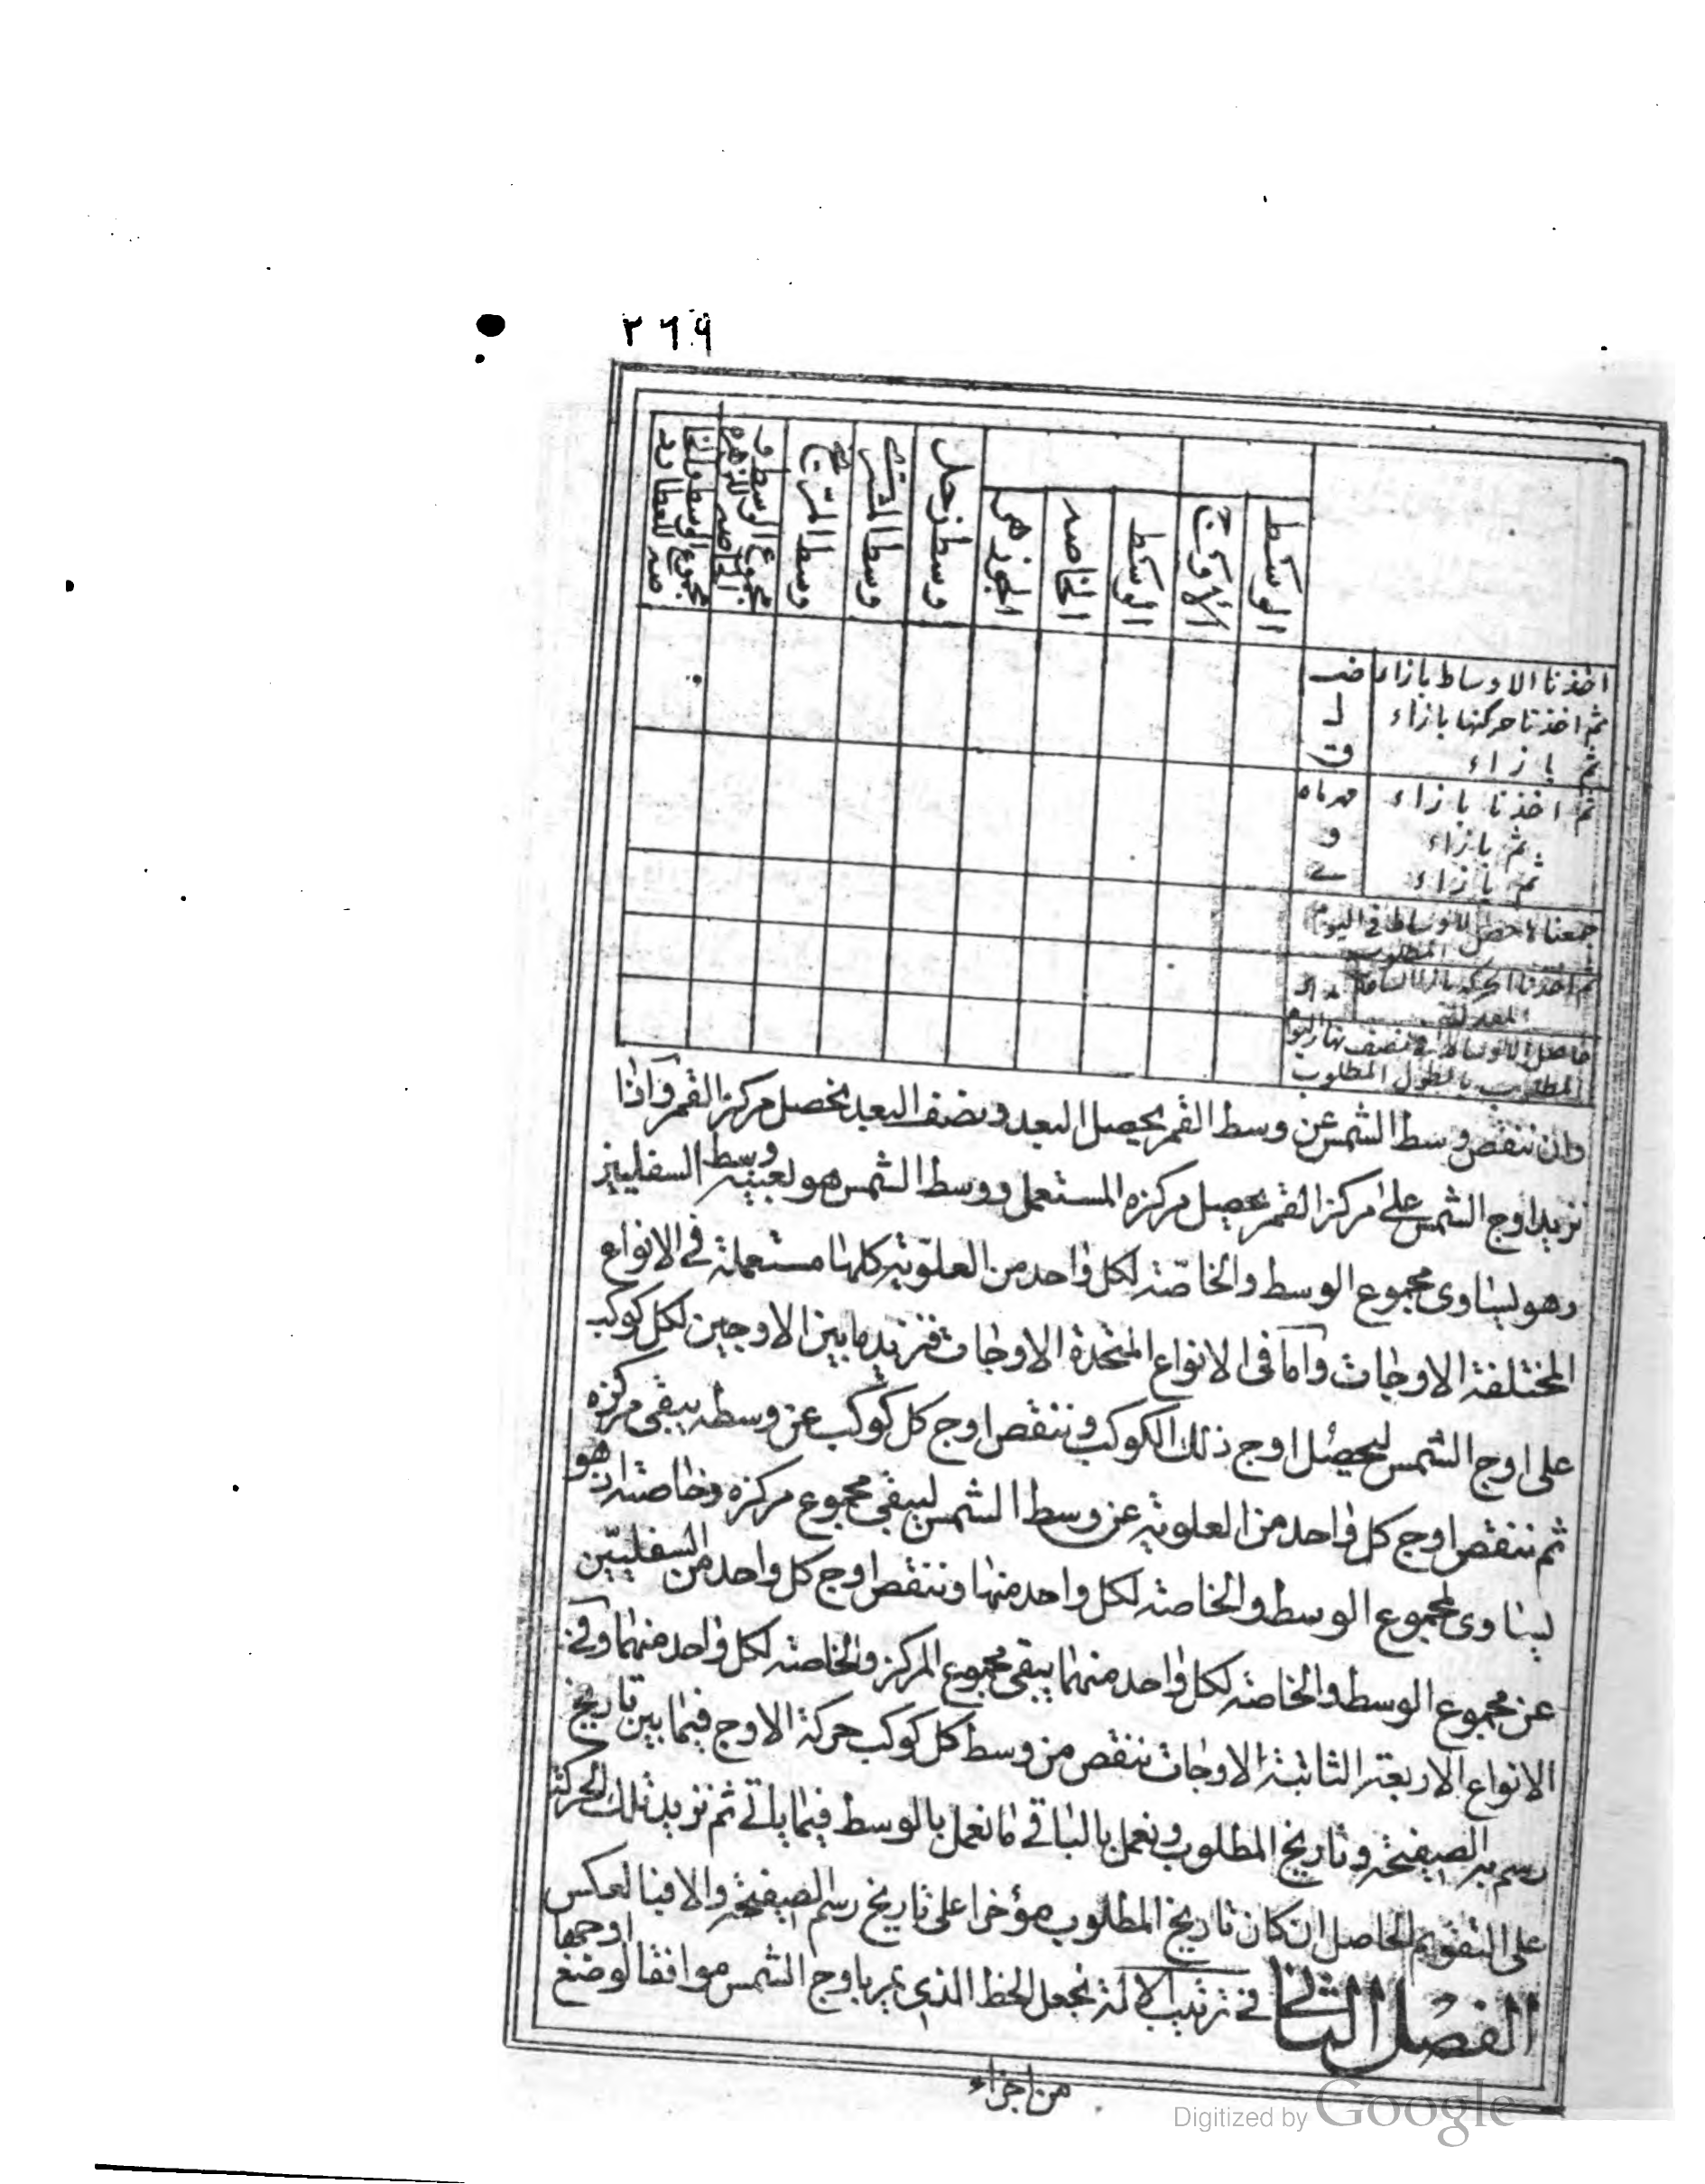 ٢٦٩
الوسط
الأوج
الوسط
الخاصه
الجوزهر
وسط زحل
وسط المشترى
وسط المريخ
مجموع الوسط و
الخاصه للزهره
مجموع الوسط والخا
صه للعطارد
اخذنا الاوساط بازاء
ثم اخذنا حركتها بازاء ل
ثم بازاء
ثم اخذنا بازاء مهرماه
ثم بازاء و
ثم بازاء
جمعنا ما حصل الاوساط فى اليوم
المطلوب
ثم اخذنا الحركه بازاء الساعة
المعدلة
حاصل الاوساط فى نصف نهار اليوم
المطلوب بالطول المطلوب
وان ننقص وسط الشمس عن وسط القمر يحصل البعد ونضف البعد يحصل مركز القمر واذا
نزيد اوج الشمس على مركز القمر يحصل مركزه المستعمل ووسط الشمس هو لعينه وسط السفليين
وهو يساوى مجموع الوسط والخاصّة لكل واحد من العلوية كلها مستعملة فى الانواع
المختلفة الاوجات واما فى الانواع المتحدة الاوجات فنزيد ما بين الاوجين لكل كوكب
على اوج الشمس ليحصل اوج ذلك الكوكب وننقص اوج كل كوكب عن وسطه يبقى مركزه
ثم ننقص اوج كل واحد من العلوية عن وسط الشمس ليبقى مجموع مركزه وخاصته اذ هو
يساوى لمجموع الوسط والخاصة لكل واحد منها وننقص اوج كل واحد من السفليّين
عن مجموع الوسط والخاصة لكل واحد منهما يبقى مجموع المركز والخاصة لكل واحد منهما وفى
الانواع الاربعة الثابتة الاوجات ننقص من وسط كل كوكب حركة الاوج فيما بين تاريخ
رسم الصفيحة وتاريخ المطلوب ونعمل بالباقى ما نعمل بالوسط فيما ياتى ثم نزيد تلك الحركة
على التقويم الحاصل ان كان تاريخ المطلوب مؤخرا على تاريخ رسم الصفيحة والا فبالعكس
الفصل الثانى فى ترتيب الالة نجعل الخط الذى يمر باوج الشمس موافقا لوضع اوجها
من اجزاء
Digitized by Google